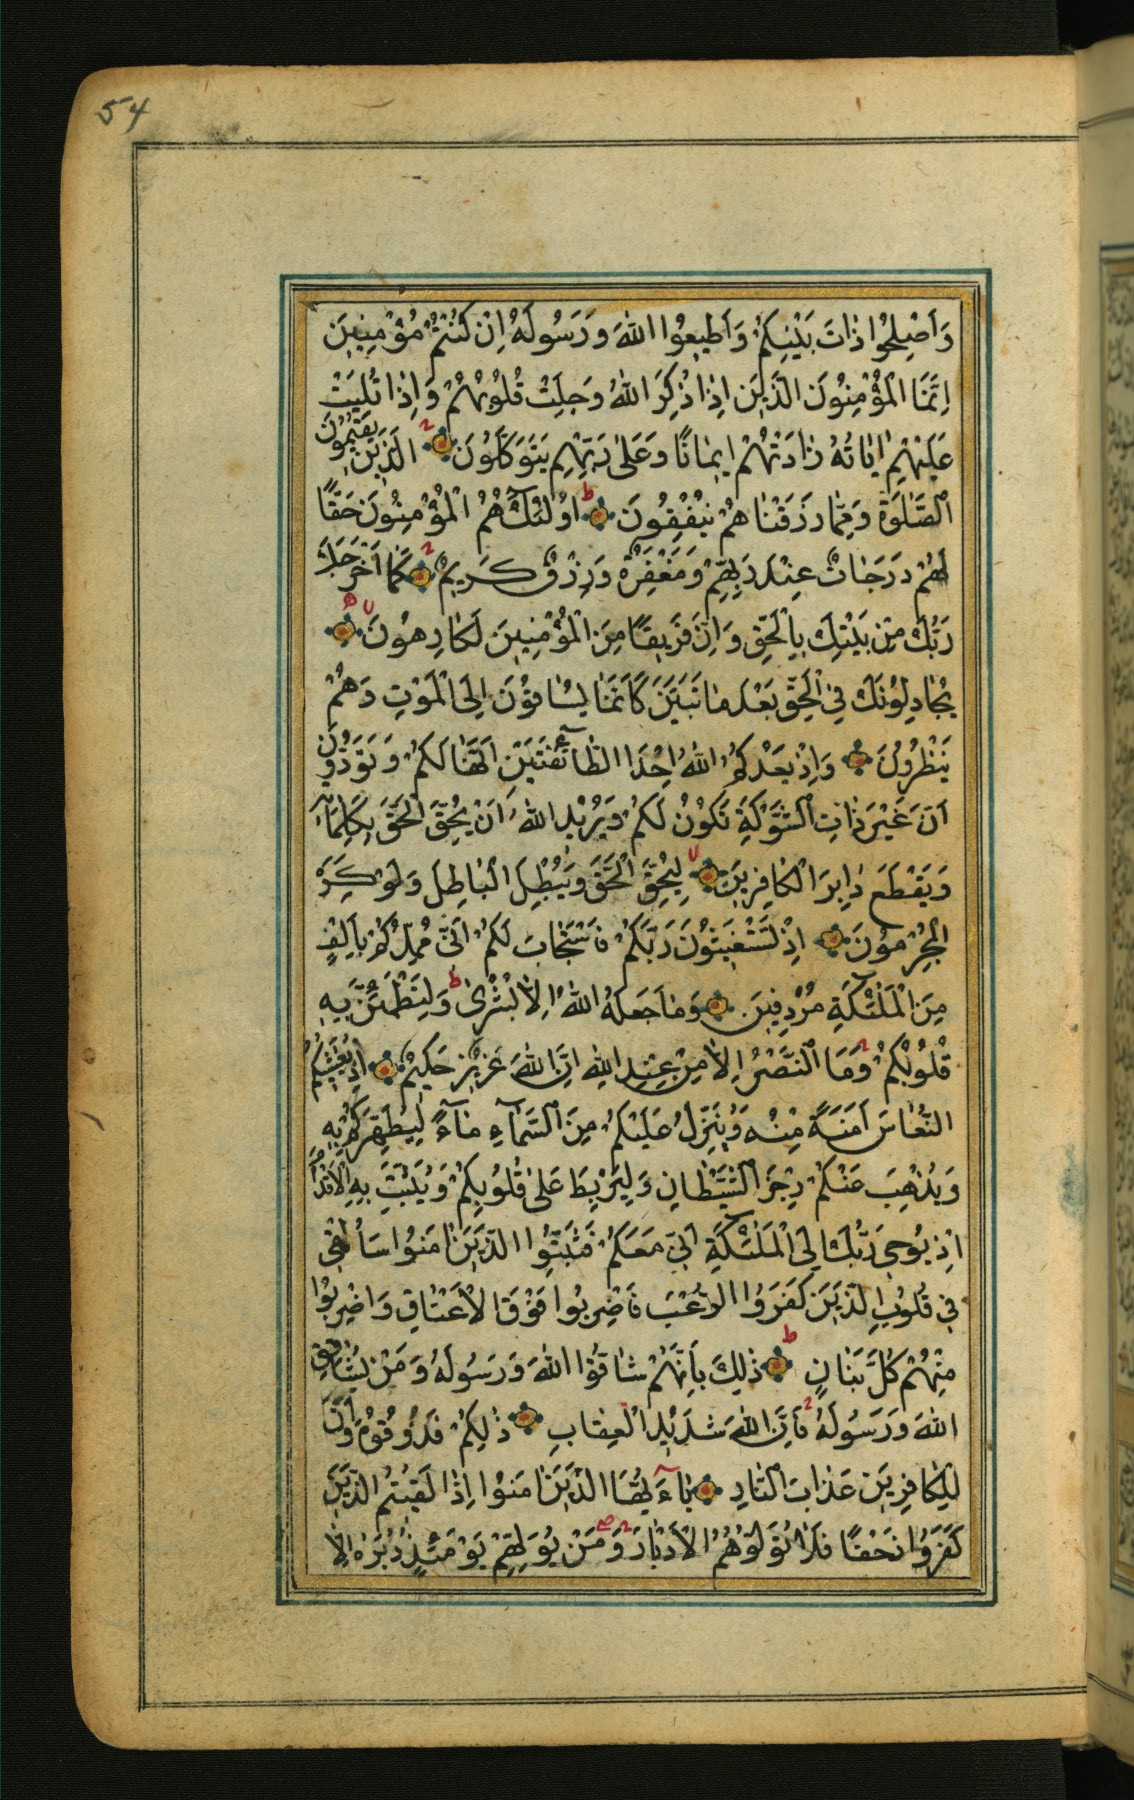 54
وَاَصْلِحُوا ذٰاتَ بَيْنِكُمْ وَاَطيعُوا اللهَ وَرَسُولَهُ اِنْ كُنْتُمْ مُؤْمِنينَ
اِنَّمَا الْمُؤْمِنُونَ الَّذينَ اِذٰا ذُكِرَ اللهُ وَجِلَتْ قُلُوبُهُمْ وَاِذٰا تُلِيَتْ
عَلَيْهِمْ اٰيٰاتُهُ زٰادَتْهُمْ ايمٰانًا وَعَلىٰ رَبِّهِمْ يَتَوَكَّلُونَ الَّذينَ يُقيمُونَ
الصَّلٰوةَ وَمِمّٰا رَزَقْنٰاهُمْ يُنْفِقُونَ ط اُولٰئِكَ هُمُ الْمُؤْمِنُونَ حَقًّا
لَهُمْ دَرَجٰاتٌ عِنْدَ رَبِّهِمْ وَمَغْفِرَةٌ وَرِزْقٌ كَريمٌ كَمٰا اَخْرَجَكَ
رَبُّكَ مِنْ بَيْتِكَ بِالْحَقِّ وَاِنَّ فَريقًا مِنَ الْمُؤْمِنينَ لَكٰارِهُونَ
يُجٰادِلُونَكَ فِي الْحَقِّ بَعْدَ مٰا تَبَيَّنَ كَاَنَّمٰا يُسٰاقُونَ اِلَى الْمَوْتِ وَهُمْ
يَنْظُرُونَ وَاِذْ يَعِدُكُمُ اللهُ اِحْدَا الطّٰآئِفَتَيْنِ اَنَّهٰا لَكُمْ وَتَوَدُّونَ
اَنَّ غَيْرَ ذٰاتِ الشَّوْكَةِ تَكُونُ لَكُمْ وَيُريدُ اللهُ اَنْ يُحِقَّ الْحَقَّ بِكَلِمٰاتِهِ
وَيَقْطَعَ دٰابِرَ الْكٰافِرينَ لِيُحِقَّ الْحَقَّ وَيُبْطِلَ الْبٰاطِلَ وَلَوْ كَرِهَ
الْمُجْرِمُونَ اِذْ تَسْتَغيثُونَ رَبَّكُمْ فَاسْتَجٰابَ لَكُمْ اَنّى مُمِدُّكُمْ بِاَلْفٍ
مِنَ الْمَلٰٓئِكَةِ مُرْدِفينَ وَمٰا جَعَلَهُ اللهُ اِلّٰا بُشْرىٰ ط وَلِتَطْمَئِنَّ بِهِ
قُلُوبُكُمْ وَمَا النَّصْرُ اِلّٰا مِنْ عِنْدِ اللهِ اِنَّ اللهَ عَزيزٌ حَكيمٌ اِذْ يُغَشّيكُمُ
النُّعٰاسَ اَمَنَةً مِنْهُ وَيُنَزِّلُ عَلَيْكُمْ مِنَ السَّمٰآءِ مٰآءً لِيُطَهِّرَكُمْ بِهِ
وَيُذْهِبَ عَنْكُمْ رِجْزَ الشَّيْطٰانِ وَلِيَرْبِطَ عَلىٰ قُلُوبِكُمْ وَيُثَبِّتَ بِهِ الْاَقْدٰامَ
اِذْ يُوحى رَبُّكَ اِلَى الْمَلٰٓئِكَةِ اَنّى مَعَكُمْ فَثَبِّتُوا الَّذينَ اٰمَنُوا سَاُلْقى
فى قُلُوبِ الَّذينَ كَفَرُوا الرُّعْبَ فَاضْرِبُوا فَوْقَ الْاَعْنٰاقِ وَاضْرِبُوا
مِنْهُمْ كُلَّ بَنٰانٍ ط ذٰلِكَ بِاَنَّهُمْ شٰاقُّوا اللهَ وَرَسُولَهُ وَمَنْ يُشٰاقِقِ
اللهَ وَرَسُولَهُ فَاِنَّ اللهَ شَديدُ الْعِقٰابِ ذٰلِكُمْ فَذُوقُوهُ وَاَنَّ
لِلْكٰافِرينَ عَذٰابَ النّٰارِ يٰآءَيُّهَا الَّذينَ اٰمَنُوا اِذٰا لَقيتُمُ الَّذينَ
كَفَرُوا زَحْفًا فَلٰا تُوَلُّوهُمُ الْاَدْبٰارَ وَمَنْ يُوَلِّهِمْ يَوْمَئِذٍ دُبُرَهُ اِلّٰا